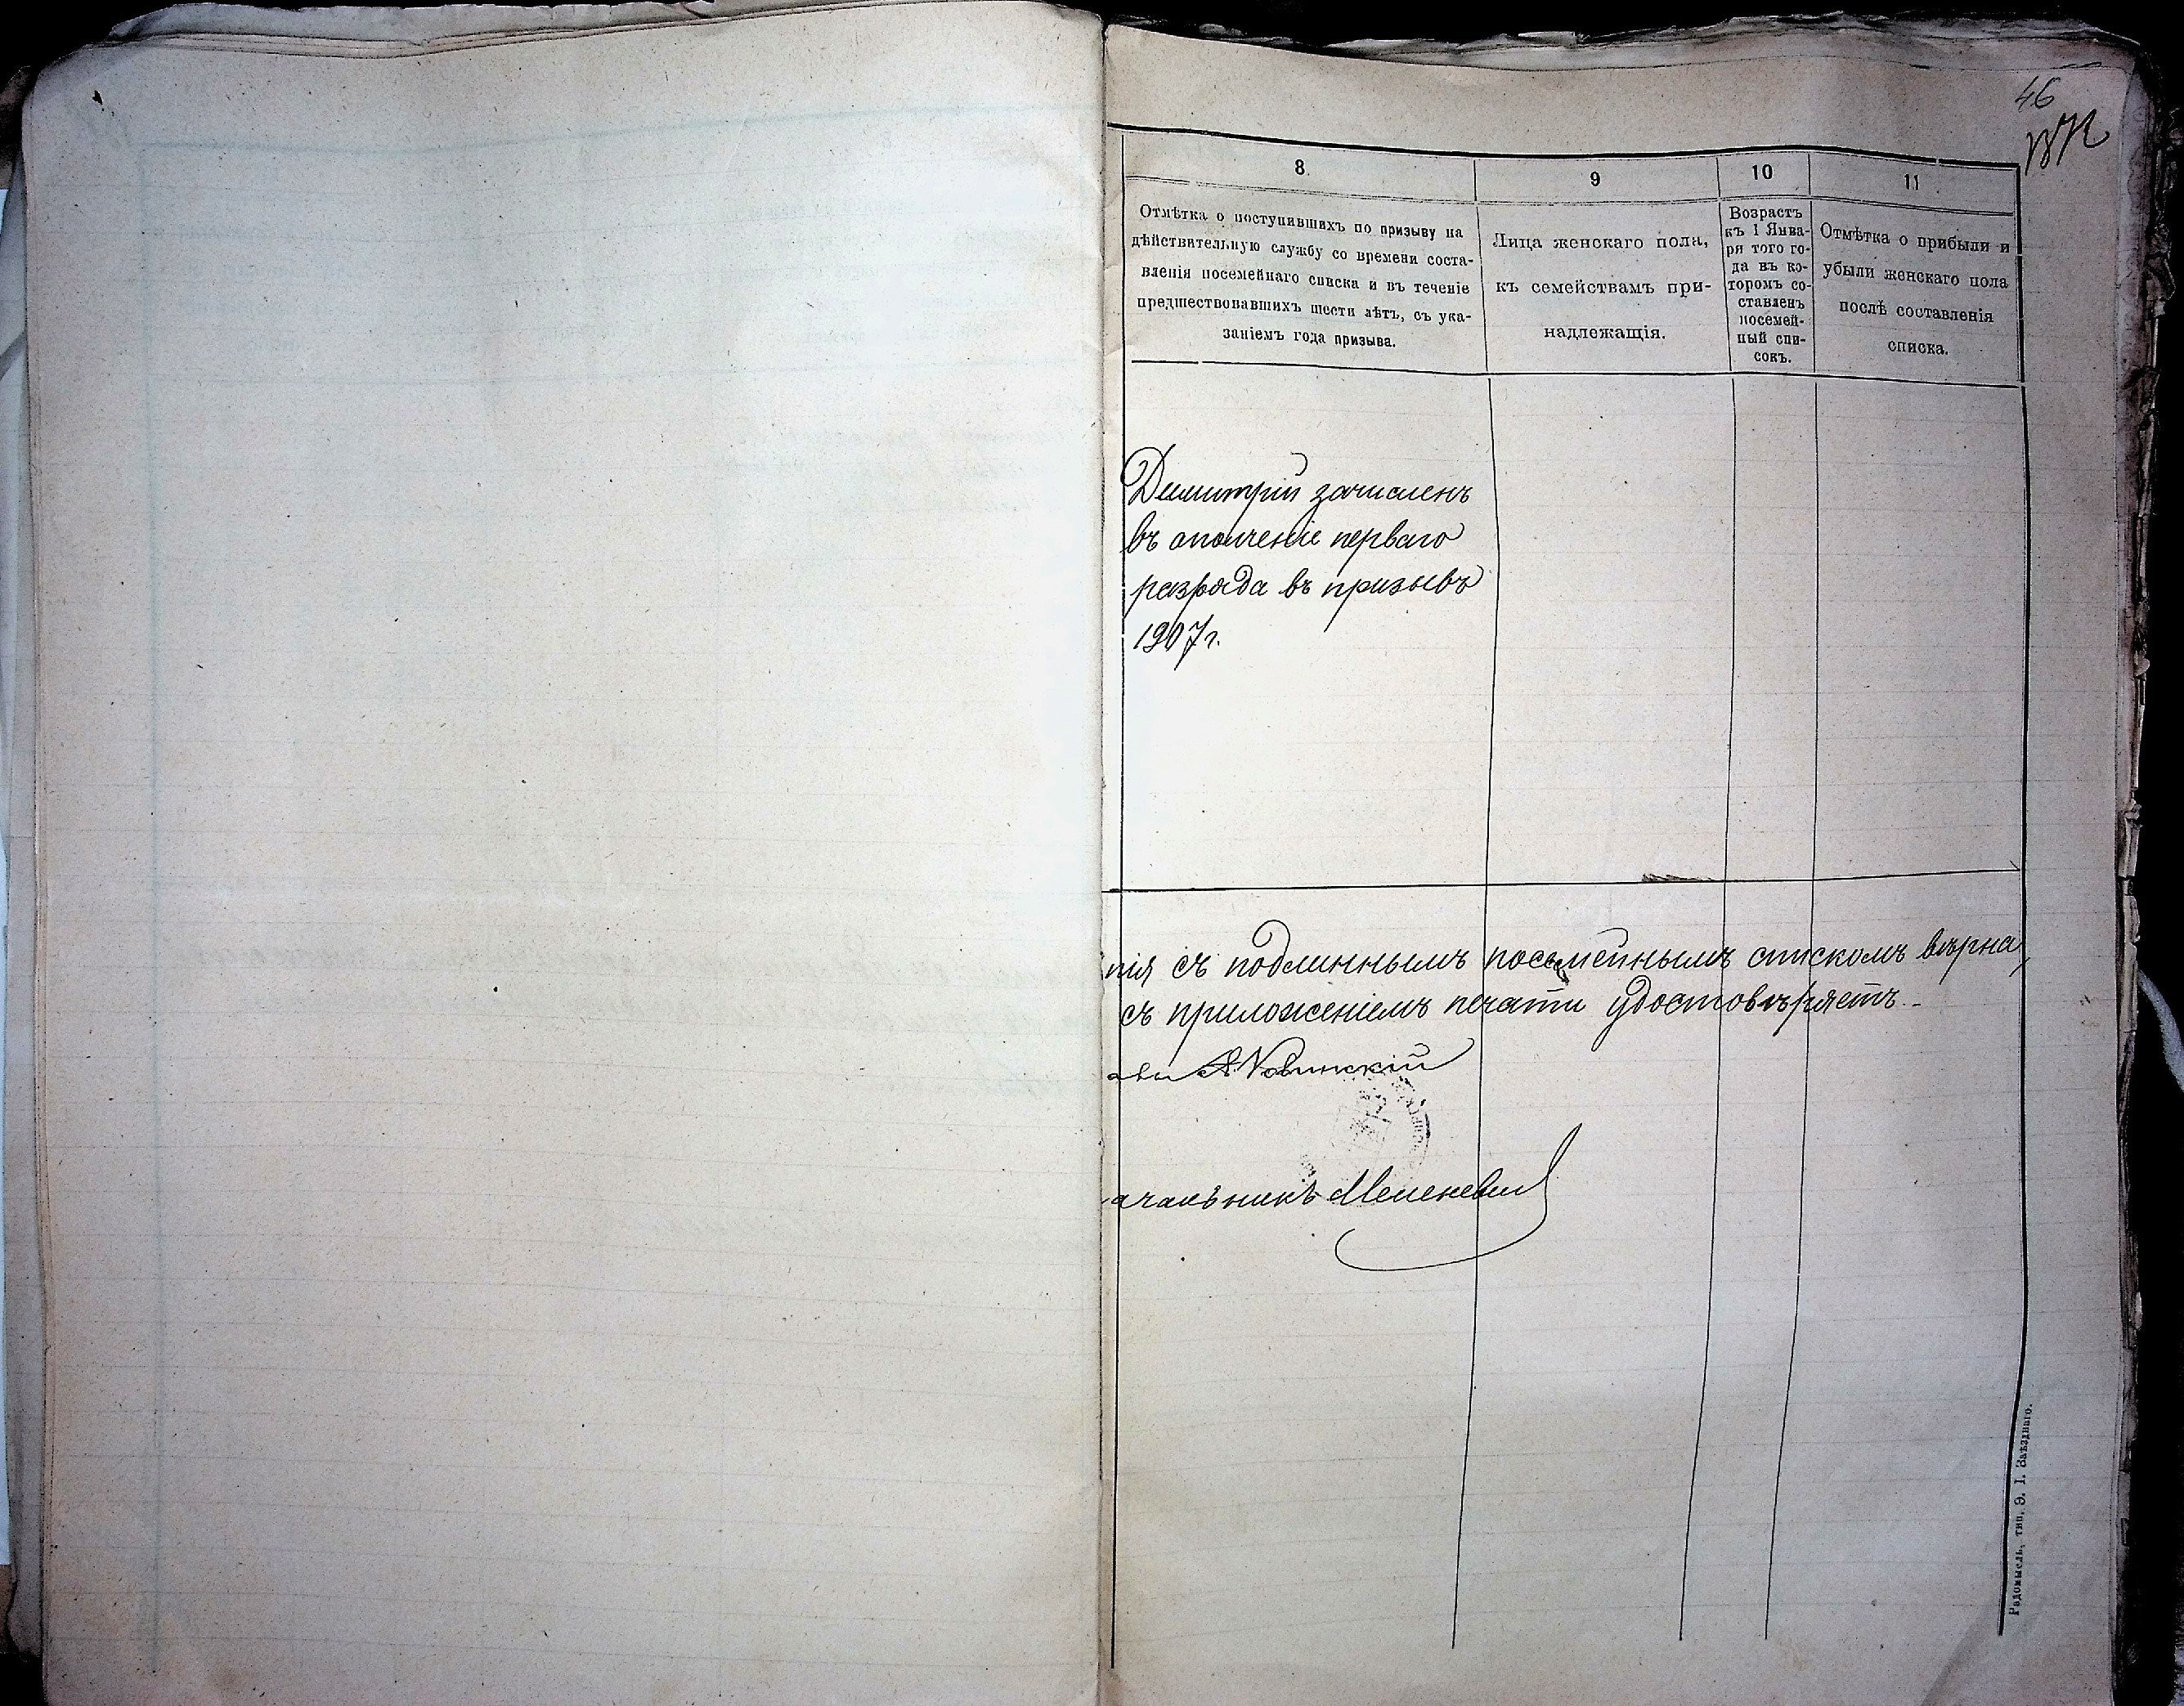 46
8
Отмѣтка о поступившихъ по призыву на
дѣйствительную службу со времени соста-
вленія посемейнаго списка и въ теченіе
предшествовавшихъ шести лѣтъ, съ ука-
заніемъ года призыва.
9
Лица женскаго пола,
къ семействамъ при-
надлежащія.
10
Возрастъ
къ 1 Янва-
ря того го-
да въ ко-
торомъ со-
ставленъ
посемей-
ный спи-
сокъ.
11
Отмѣтка о прибыли и
убыли женскаго пола
послѣ составленія
списка.
Димитрій зачисленъ
въ ополченіе перваго
разряда въ призывъ
1907 г.
пія съ подлиннымъ посемейнымъ спискомъ вѣрна,
съ приложеніемъ печати удостовѣряетъ.-
ачальникъ
Радомысль, тип. Э. І. Заѣзднаго.